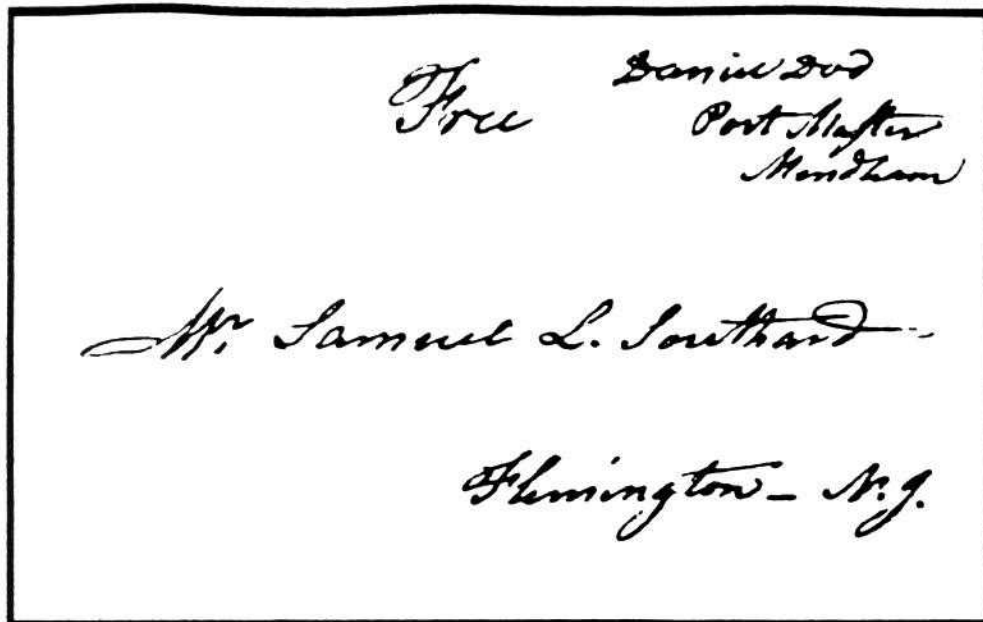 Free
Daniel Dod
Post Master
Mendham
Mr. Samuel L. Southard
Flemington - N. J.